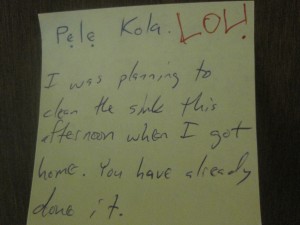 Pẹlẹ Kọla. LOL!
I was planning to
clean the sink this
afternoon when I got
home. You have already
done it.